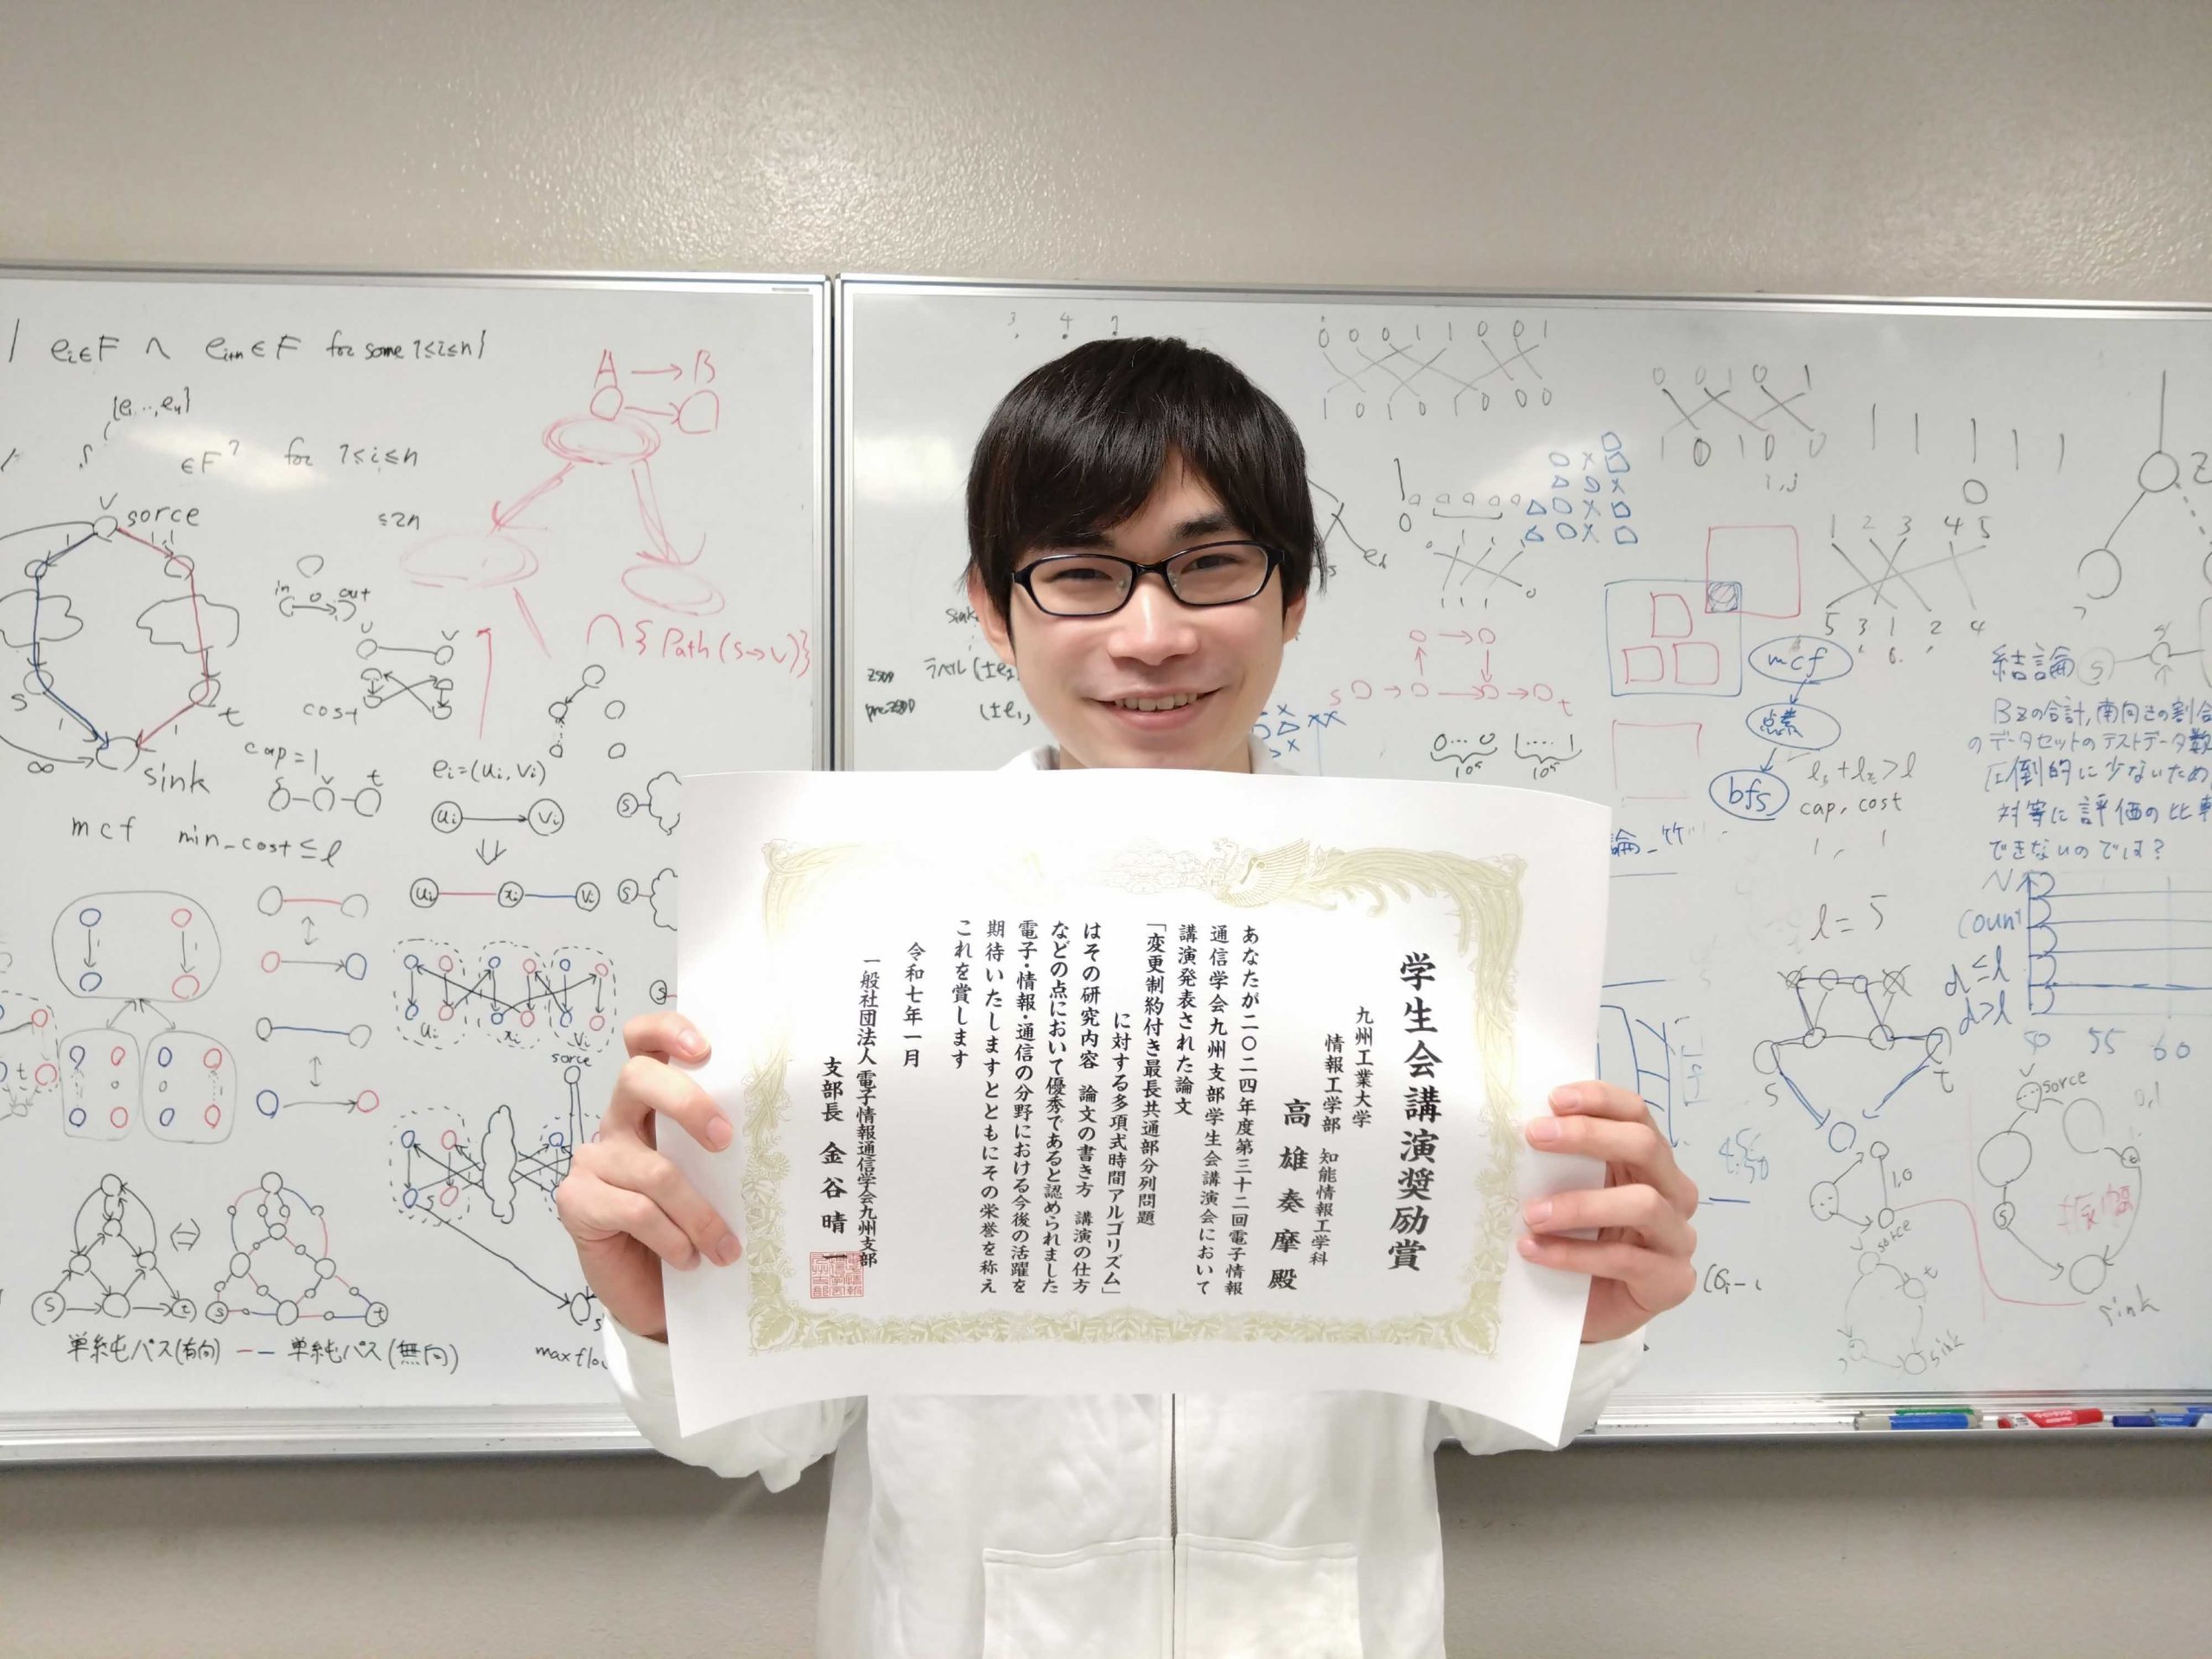 学生会講演奨励賞
九州工業大学
情報工学部 知能情報工学科
高雄奏摩殿
あなたが二〇二四年度第三十二回電子情報
通信学会九州支部学生会講演会において
講演発表された論文
「変更制約付き最長共通部分列問題
に対する多項式時間アルゴリズム」
はその研究内容 論文の書き方 講演の仕方
などの点において優秀であると認められました
電子・情報・通信の分野における今後の活躍を
期待いたしますとともにその栄誉を称え
これを賞します
令和七年一月
一般社団法人電子情報通信学会九州支部
支部長 金谷晴一
ei∈F ∧ ei+n∈F for some 1≤i≤n}
{e1…,en}
∈F? for 1≤i≤n
A → B
v sorce
≤2n
in out
∩{Path(s→v)}
s
t
cost
cap=1
∞
sink
ei=(ui,vi)
s v t
ui vi
mcf min_cost≤l
ui xi vi
ui xi vi
sorce
s t
s t
単純パス(有向) ― 単純パス(無向)
3 4 7
0 0 0 1 1 0 0 1
1 0 1 0 1 0 0 0
0 0 1 0 1
1 0 1 0 0
1,j
1 2 3 4 5
5 3 1 2 4
ラベル
s
t
0…0 1…1
mcf
点素
bfs
cap, cost
1, 1
l=5
s
t
z
結論
Bzの合計,南向きの割合
のデータセットのテストデータ数
圧倒的に少ないため
対等に評価の比較
できないのでは?
N
count
d≤l
d>l
50 55 60
v sorce
s
t
sink
1.0
v sorce
t
sink
振幅